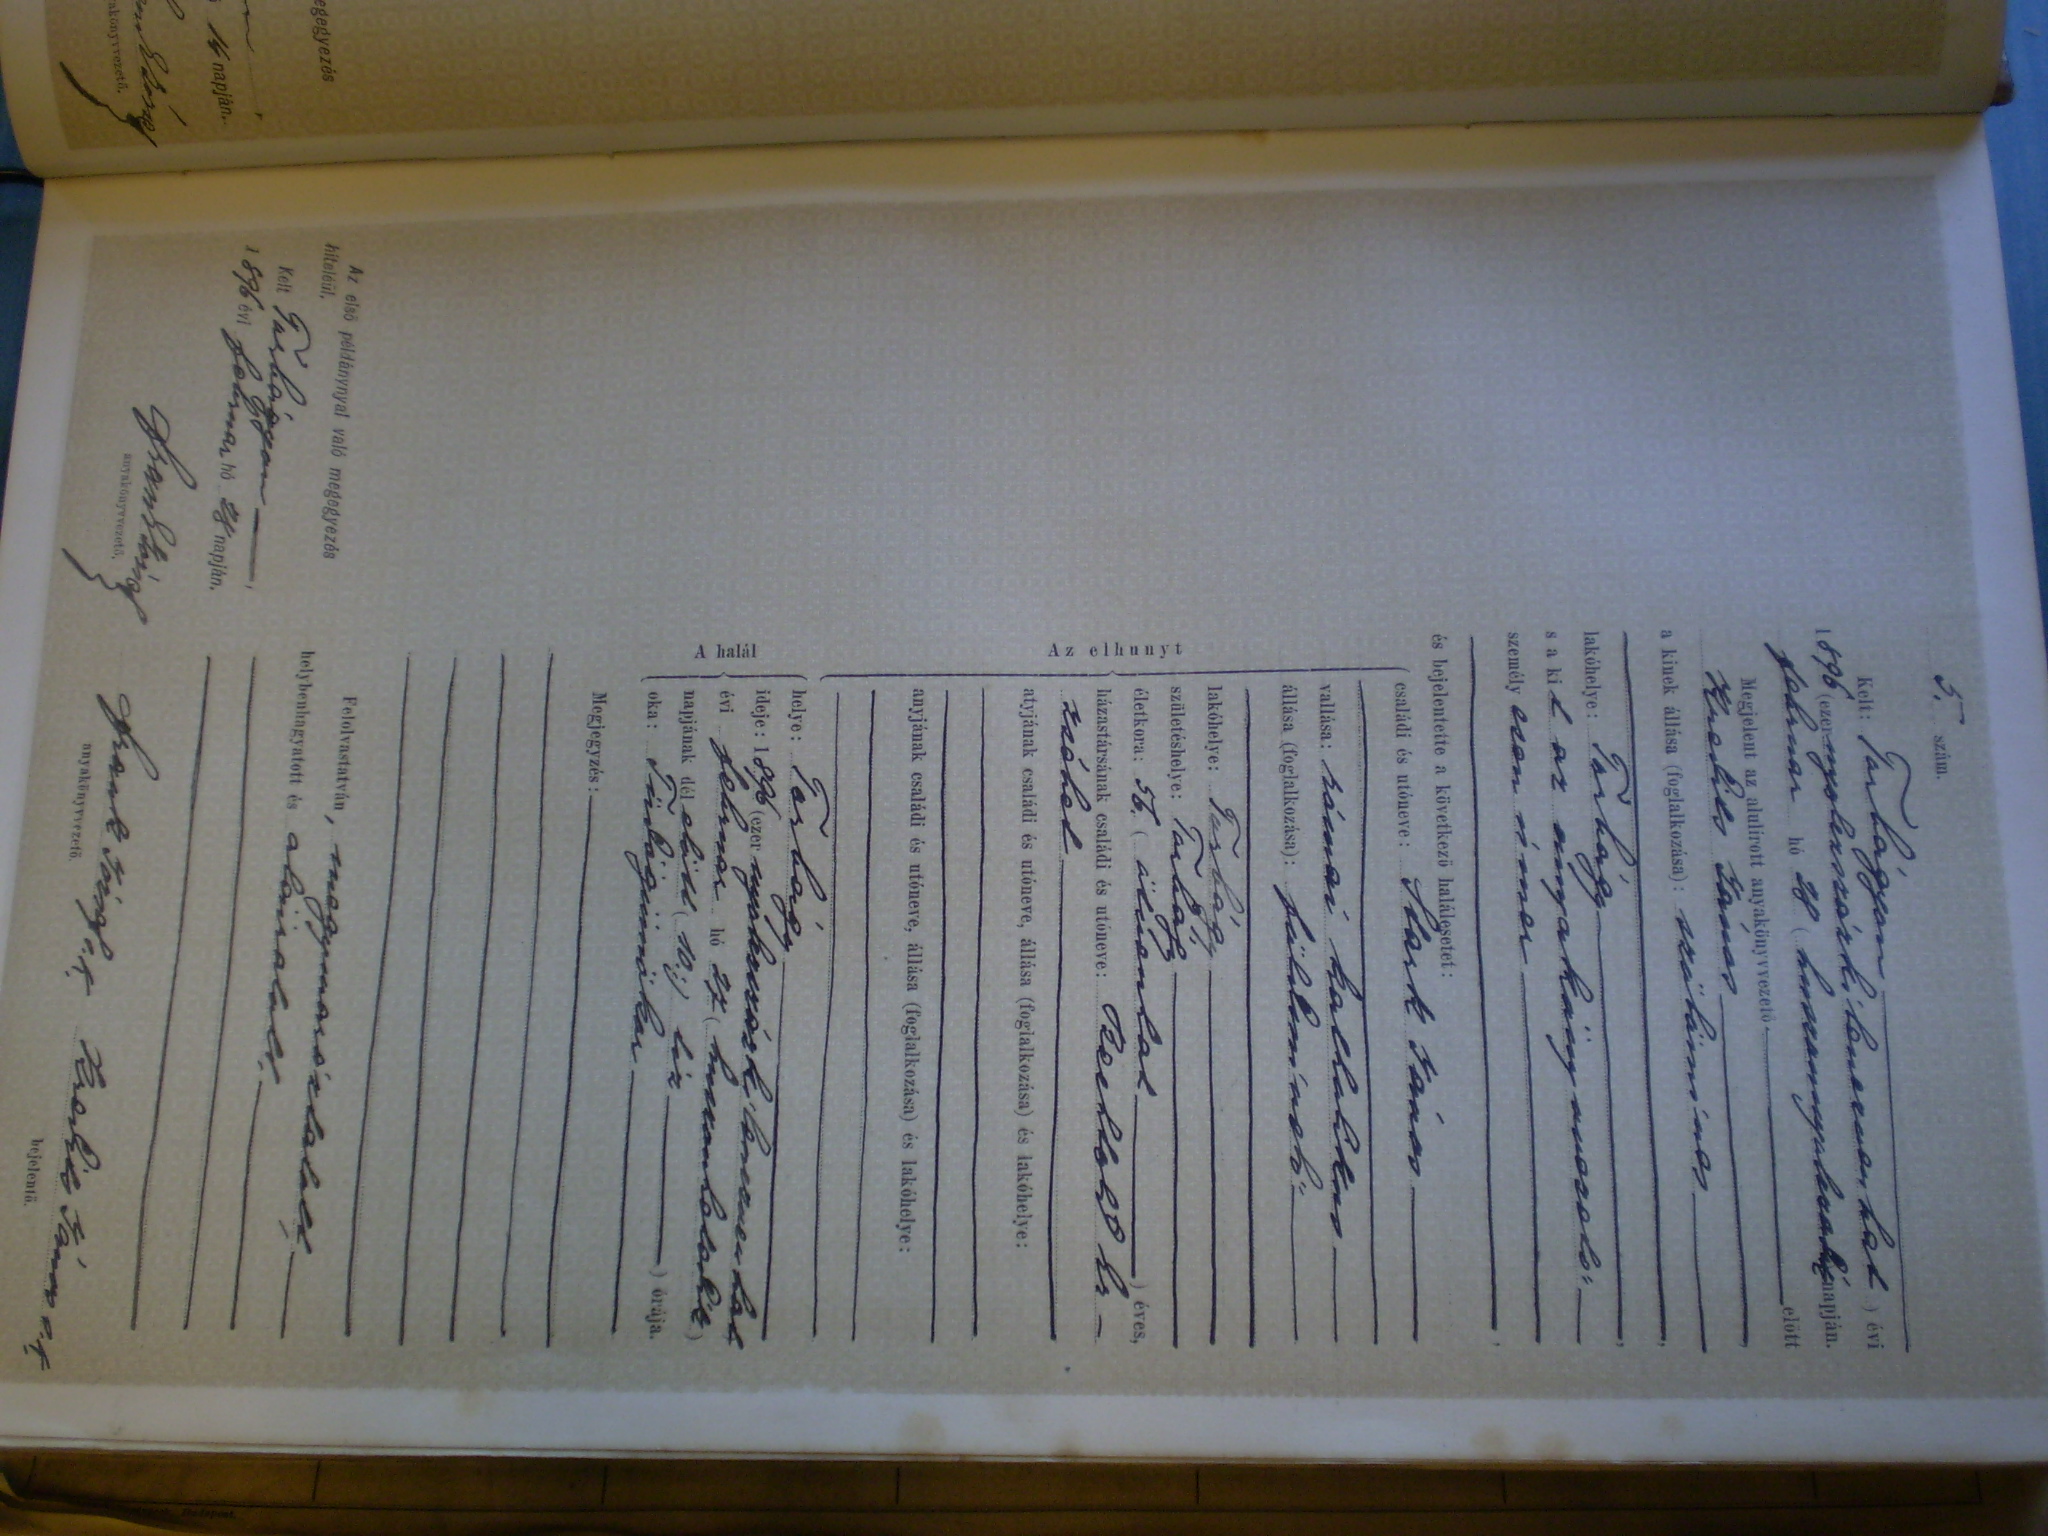 5. szám.
Kelt: Torbágyon
1896 (ezer nyolczszázkilenczvenhat) évi
februar hó 28 (huszonnyolczadik) napján.
Megjelent az alulirott anyakönyvvezető előtt
János
a kinek állása (foglalkozása):
lakóhelye: Torbágy
s a kit az anyakönyvvezető
személyesen ismer
és bejelentette a következő halálesetet:
Az elhunyt
családi és utóneve: Stark János
vallása: római katholikus
állása (foglalkozása): földmívelő
lakóhelye: Torbágy
születéshelye: Torbágy
életkora: 56. (ötvenhat) éves,
házastársának családi és utóneve:
atyjának családi és utóneve, állása (foglalkozása) és lakóhelye:
anyjának családi és utóneve, állása (foglalkozása) és lakóhelye:
A halál
helye: Torbágy
ideje: 1896 (ezer nyolczszázkilenczvenhat
évi februar hó 27 (huszonhetedik)
napjának dél előtt (10) tíz) órája.
oka: Tüdőgümőkór
Megjegyzés:
Felolvastatván, megmagyaráztatott
helybenhagyatott és aláiratott.
anyakönyvvezető.
János
bejelentő.
Az első példánynyal való megegyezés
hiteléül.
Kelt Torbágyon
1896 évi februar hó 28 napján.
anyakönyvvezető.
megegyezés
14 napján.
anyakönyvvezető.